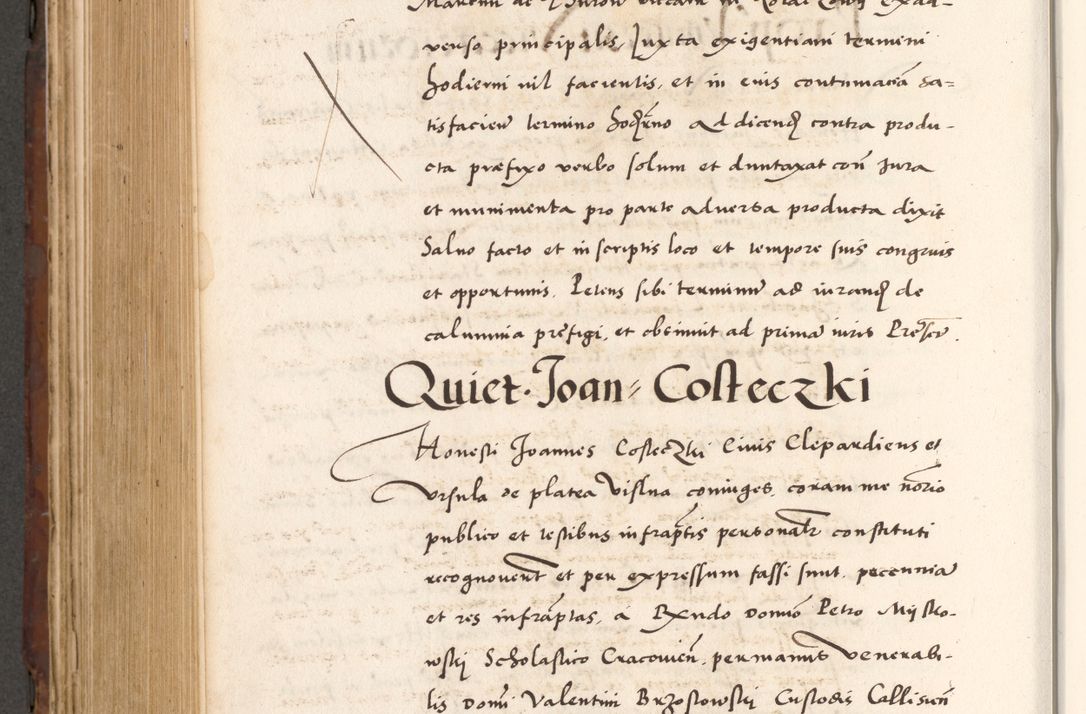 verso principalis, Juxta exigentiam termini
hodierni nil facientis, et in eius contumaciā sa=
tisfacien̄ termino hodierno ad dicend contra produ-
cta præfixo verbo solum et duntaxat con̄ Jura
et munimenta pro parte adversa producta dixit
Salvo facto et in scriptis loco et tempore suis congruis
et opportunis. Petens sibi terminū ad iurand de
calumnia prefigi, et obtinuit ad primā iuris
Quiet. Joan= Costeczki
Honesti Joannes Costeczki Civis Clepardiens et
Ursula de platea Vislna coniuges, coram me norio
publico et testibus infraptis personalr constituti
recognoverūt et per expressum fassi sunt, peccunia
et res infraptas, a Rxndo Domīo Petro Mijsko-
wskij Scholastico Cracovien̄, per manus venerabi-
lis Domi Valentini Brzostowskij Custodis Callisien̄